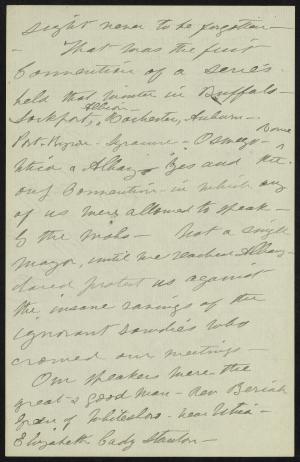 sight never to be forgotten—
— That was the first
Convention of a series
held that winter in Buffalo—
Albion—
Lockport, Rochester, Auburn—
Port Byron— Syracuse— Oswego— Rome
Utica & Albany— Yes and the
only Convention in which any
of us were allowed to speak—
by the mobs— Not a single
mayor, until we reached Albany—
dared protect us against
the insane ravings of the
ignorant rowdies who
crowed our meetings—
Our speakers were the
great & good man— Rev Beriah
Green of Whitesboro— near Utica—
Elizabeth Cady Stanton—